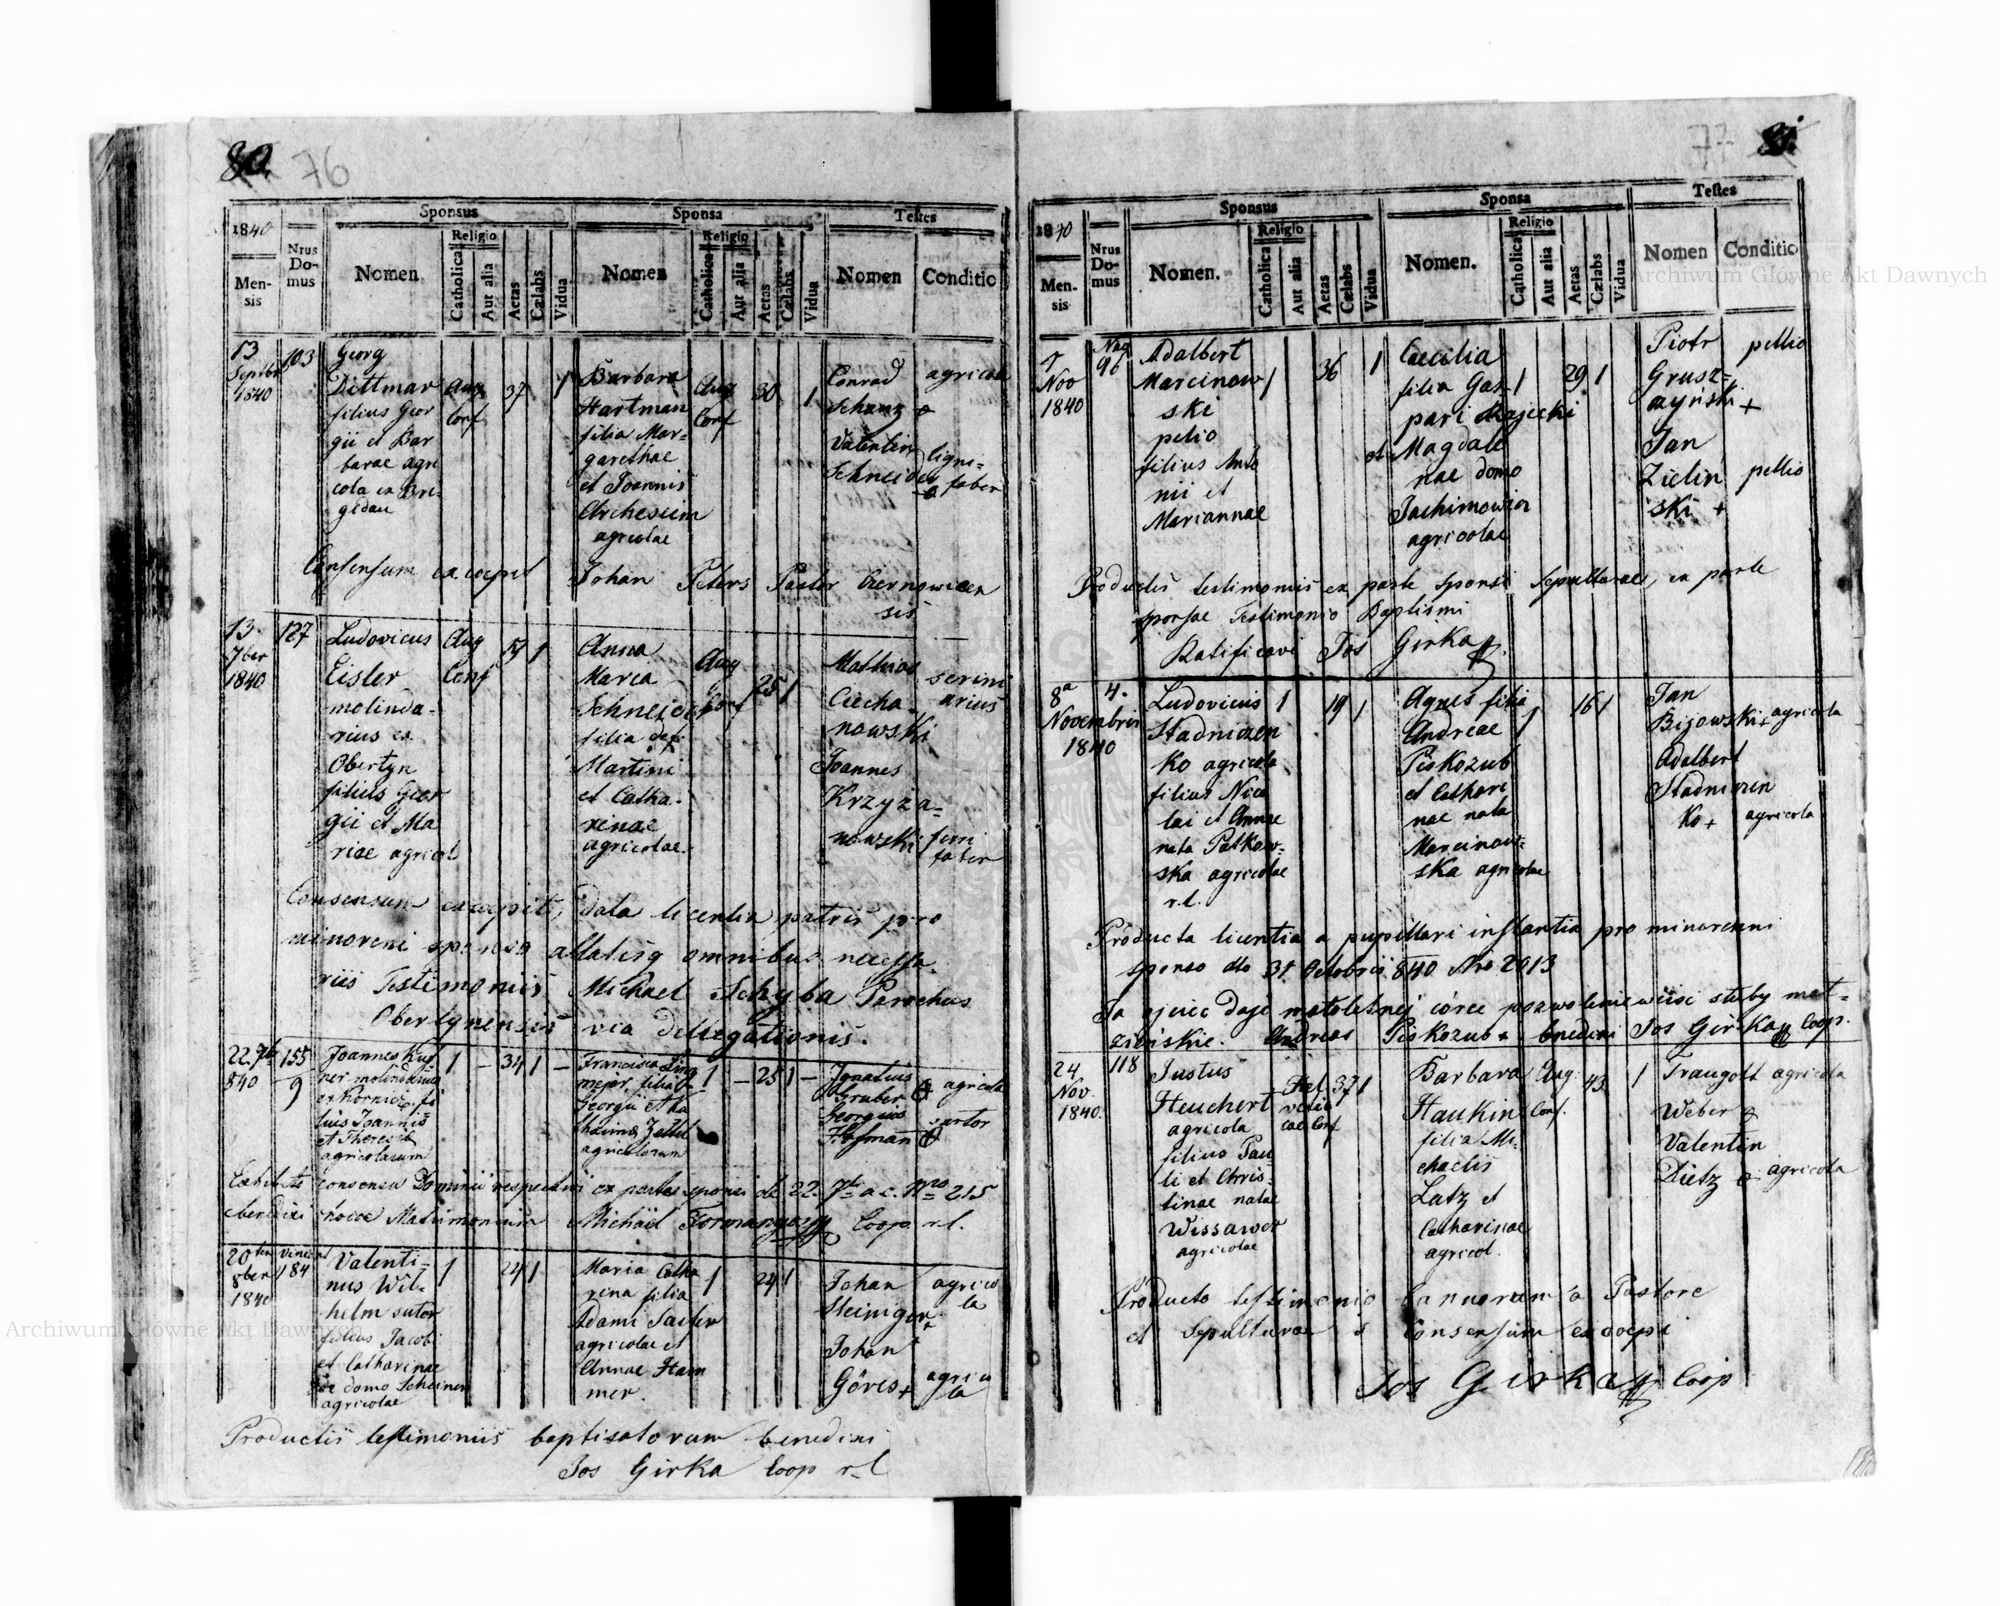 80. 76
Sponsus Sponsa Testes
1840
Mensis
Nrus Domus
Nomen
Religio
Catholica
Aut alia
Aetas
Cælabs
Vidua
Nomen
Religio
Catholica
Aut alia
Aetas
Cælabs
Vidua
Nomen
Conditio
13
Septbr
1840
103
Georg
Dittmar
filius Geor
gii et Bar
barae agri
cola ex Bri-
gidau
Aug
Conf
37 1
Barbara
Hartman
filia Mar=
garethae
et Joannis
agricolae
Aug
Conf
30 1
Conrad
Schanz
Valentin
Schneider
agricola
ligni=
faber
Consensum excoepit Johan Peters Pastor Czernowicen
sis
13
7ber
1840
127
Ludovicus
Eisler
molinda-
rius ex
Obertyn
filius Geor
gii et Ma
riae agricol
Aug
Conf
1
Anna
Maria
Schneider
filia def
Martini
et Catha-
rinae
agricolae.
Aug
Conf
25 1
Mathias
Ciecha-
nowski
Joannes
Krzyża=
nowski
scrini
arius
ferri
faber
Consensum excoepit, data licentia patris pro
minoreni sponsa allatisq omnibus necessa
riis Testimoniis Michael Schyba Parochus
Obertynensis via delegationis.
22. 7br
840
155
9
Joannes
ner molindarius
fi
lius Joannis
et Theresiae
agricolarum
1 – 34 1 –
Francisca Ling
mejer, filia
Georgii et Ka
tharinae Zettel
agricolarum
1 – 25 1 –
Ignatius
Gruber
Georgius
Hofman
agricola
sartor
Exhibito consensu Dominii respectivi ex parte sponsi de 22. 7br a c. Nro 215
benedixi hocce Matrimonium Michäel Coop r.l.
20
8ber
1840
184
Valenti-
nus Wil-
helm sutor
filius Jacobi
et Catharinae
de domo Scheiner
agricolae
1 24 1
Maria Catha
rina filia
Adami Sauer
agricolae et
Annae Ham
mer.
1 24 1
Johan
Steiniger +
Johan
Göres +
agrico
la
agrico
la
Productis testimoniis baptisatorum benedixi
Jos Girka Coop r.l
77 81.
Sponsus Sponsa Testes
1840
Mensis
Nrus Domus
Nomen.
Religio
Catholica
Aut alia
Aetas
Cælabs
Vidua
Nomen.
Religio
Catholica
Aut alia
Aetas
Cælabs
Vidua
Nomen
Conditio
7
Nov
1840
96
Adalbert
Marcinow
ski
pelio
filius Anto
nii et
Mariannae
1 36 1
Caecilia
filia Gas
pari Zajecki
et Magdale
nae domo
Jachimowicz
agricolae
1 29 1
Piotr
Grusz=
czyński +
Jan
Zielin
ski +
pellio
pellio
Productis testimoniis ex parte Sponsi Sepulturae, ex parte
sponsae Testimonio Baptismi
Ratificavi Jos Girka
8a
Novembris
1840
4.
Ludovicus
Stadniczen
ko agricola
filius Nico
lai et Annae
nata Patkow=
ska agricolae
r.l.
1 19 1
Agnes filia
Andreae
Piskozub
et Cathari
nae nata
Marcinow=
ska agricolae
1 16 1
Jan
Bizowski +
Adalbert
Stadniczen
ko +
agricola
agricola
Producta licentia a pupillari instantia pro minorenni
sponso dto 31 Octobris 840 Nro 2013
Ja ojciec daję małoletniej córce pozwolenie wniść śluby mał=
żeńskie. Andreas Piskozub + benedixi Jos Girka Coop.
24
Nov.
1840.
118
Justus
Heuchert
agricola
filius Pau
li et Chris=
tinae natae
Wissawer
agricolae
Hel
vetic
cae Conf
37 1
Barbara
Haukin
filia Mi-
chaelis
Latz et
Catharinae
agricol.
Aug.
Conf.
43 1
Traugott
Weber
Valentin
Dietz
agricola
agricola
Producto testimonio bannorum a Pastore
et Sepulturae Consensum excoepi
Jos Girka Coop
Archiwum Główne Akt Dawnych
Archiwum Główne Akt Dawnych